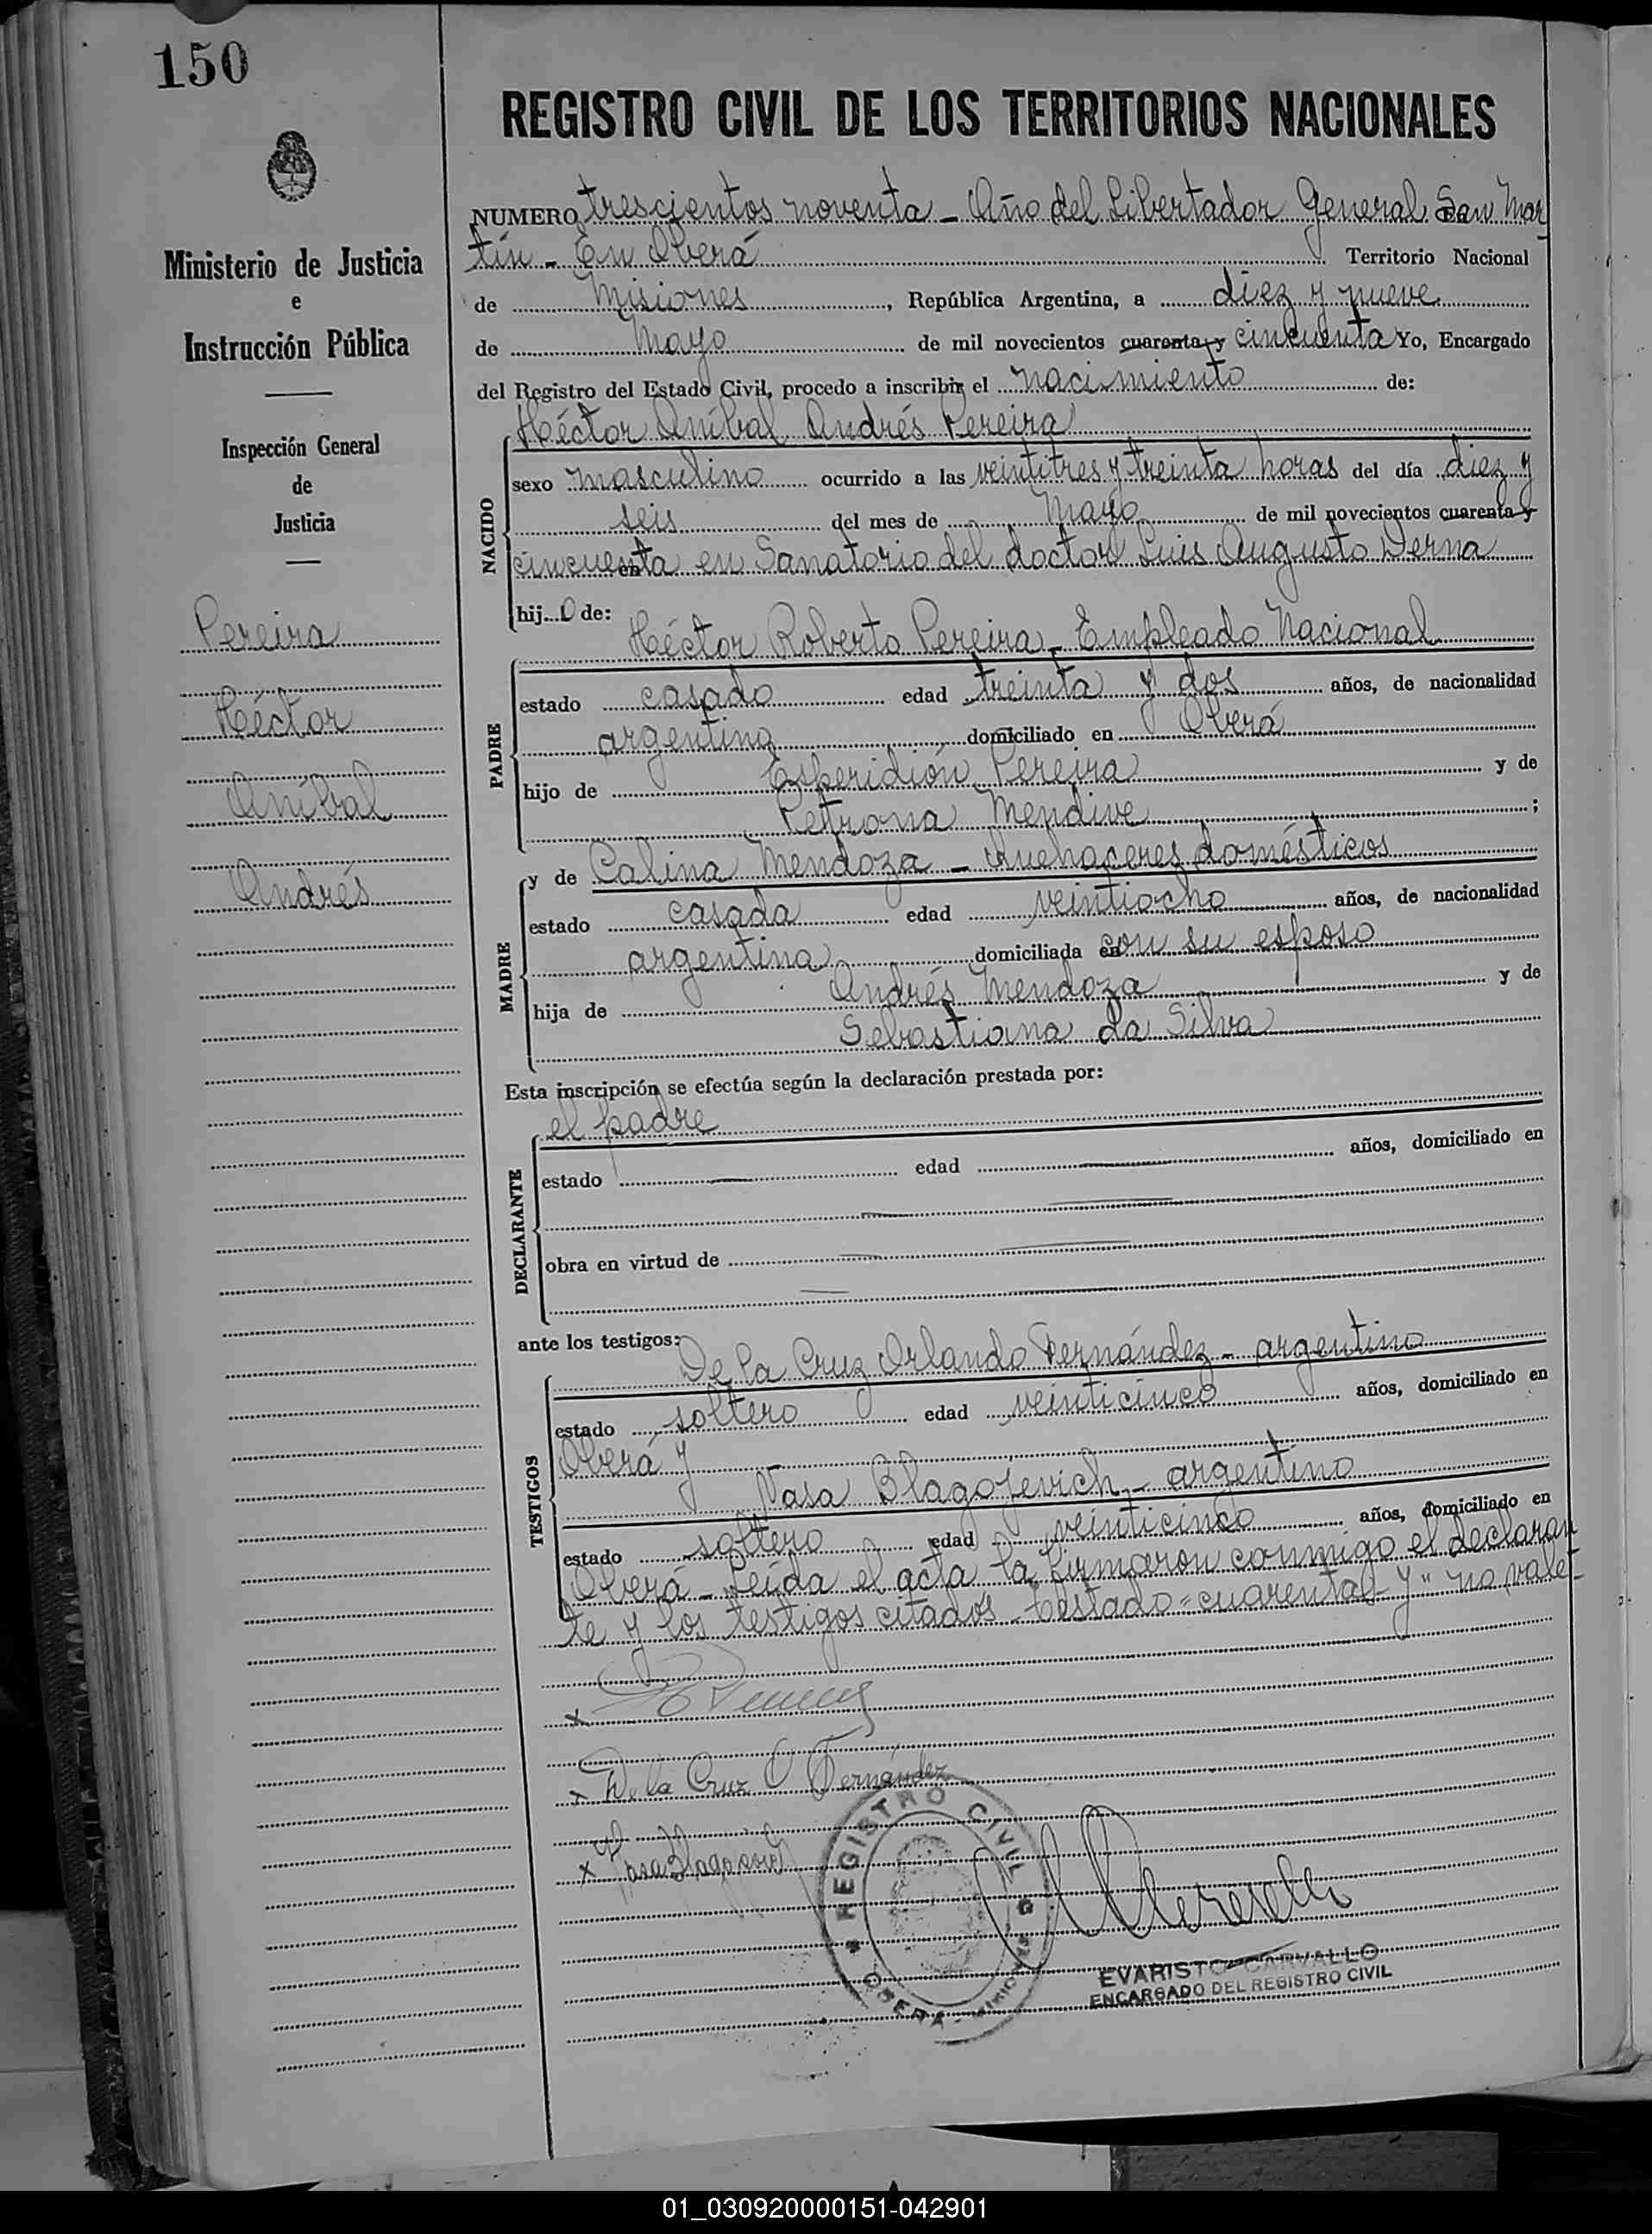 150
REGISTRO CIVIL DE LOS TERRITORIOS NACIONALES
Ministerio de Justicia
e
Instrucción Pública
Inspección General
de
Justicia
Pereira
Héctor
Aníbal
Andrés
NUMERO trescientos noventa - Año del Libertador General San Mar
tín - En Oberá Territorio Nacional
de Misiones, República Argentina, a diez y nueve
de Mayo de mil novecientos cuarenta y cincuenta Yo, Encargado
del Registro del Estado Civil, procedo a inscribir el nacimiento de:
NACIDO
Héctor Aníbal Andrés Pereira
sexo masculino ocurrido a las veintitres y treinta horas del día diez y
seis del mes de Mayo de mil novecientos cuarenta y
cincuenta en Sanatorio del doctor Luis Augusto Derna
hijo de:
PADRE
Héctor Roberto Pereira - Empleado Nacional
estado casado edad treinta y dos años, de nacionalidad
argentina domiciliado en Oberá
hijo de Esperidión Pereira y de
Petrona Mendive;
MADRE
y de Calina Mendoza - Quehaceres domésticos
estado casada edad veintiocho años, de nacionalidad
argentina domiciliada en con su esposo
hija de Andrés Mendoza y de
Sebastiana da Silva
Esta inscripción se efectúa según la declaración prestada por:
DECLARANTE
el padre
estado edad años, domiciliado en
obra en virtud de
ante los testigos:
TESTIGOS
De la Cruz Orlando Fernández - argentino
estado soltero edad veinticinco años, domiciliado en
Oberá y
Vasa Blagojevich - argentino
estado soltero edad veinticinco años, domiciliado en
Oberá - Leída el acta la firmaron conmigo el declaran
te y los testigos citados - Testado = cuarenta - y " no vale -
x
x D. la Cruz O Fernández
x Vasa
REGISTRO CIVIL
OBERA - MISIONES
EVARISTO CARVALLO
ENCARGADO DEL REGISTRO CIVIL
01_030920000151-042901